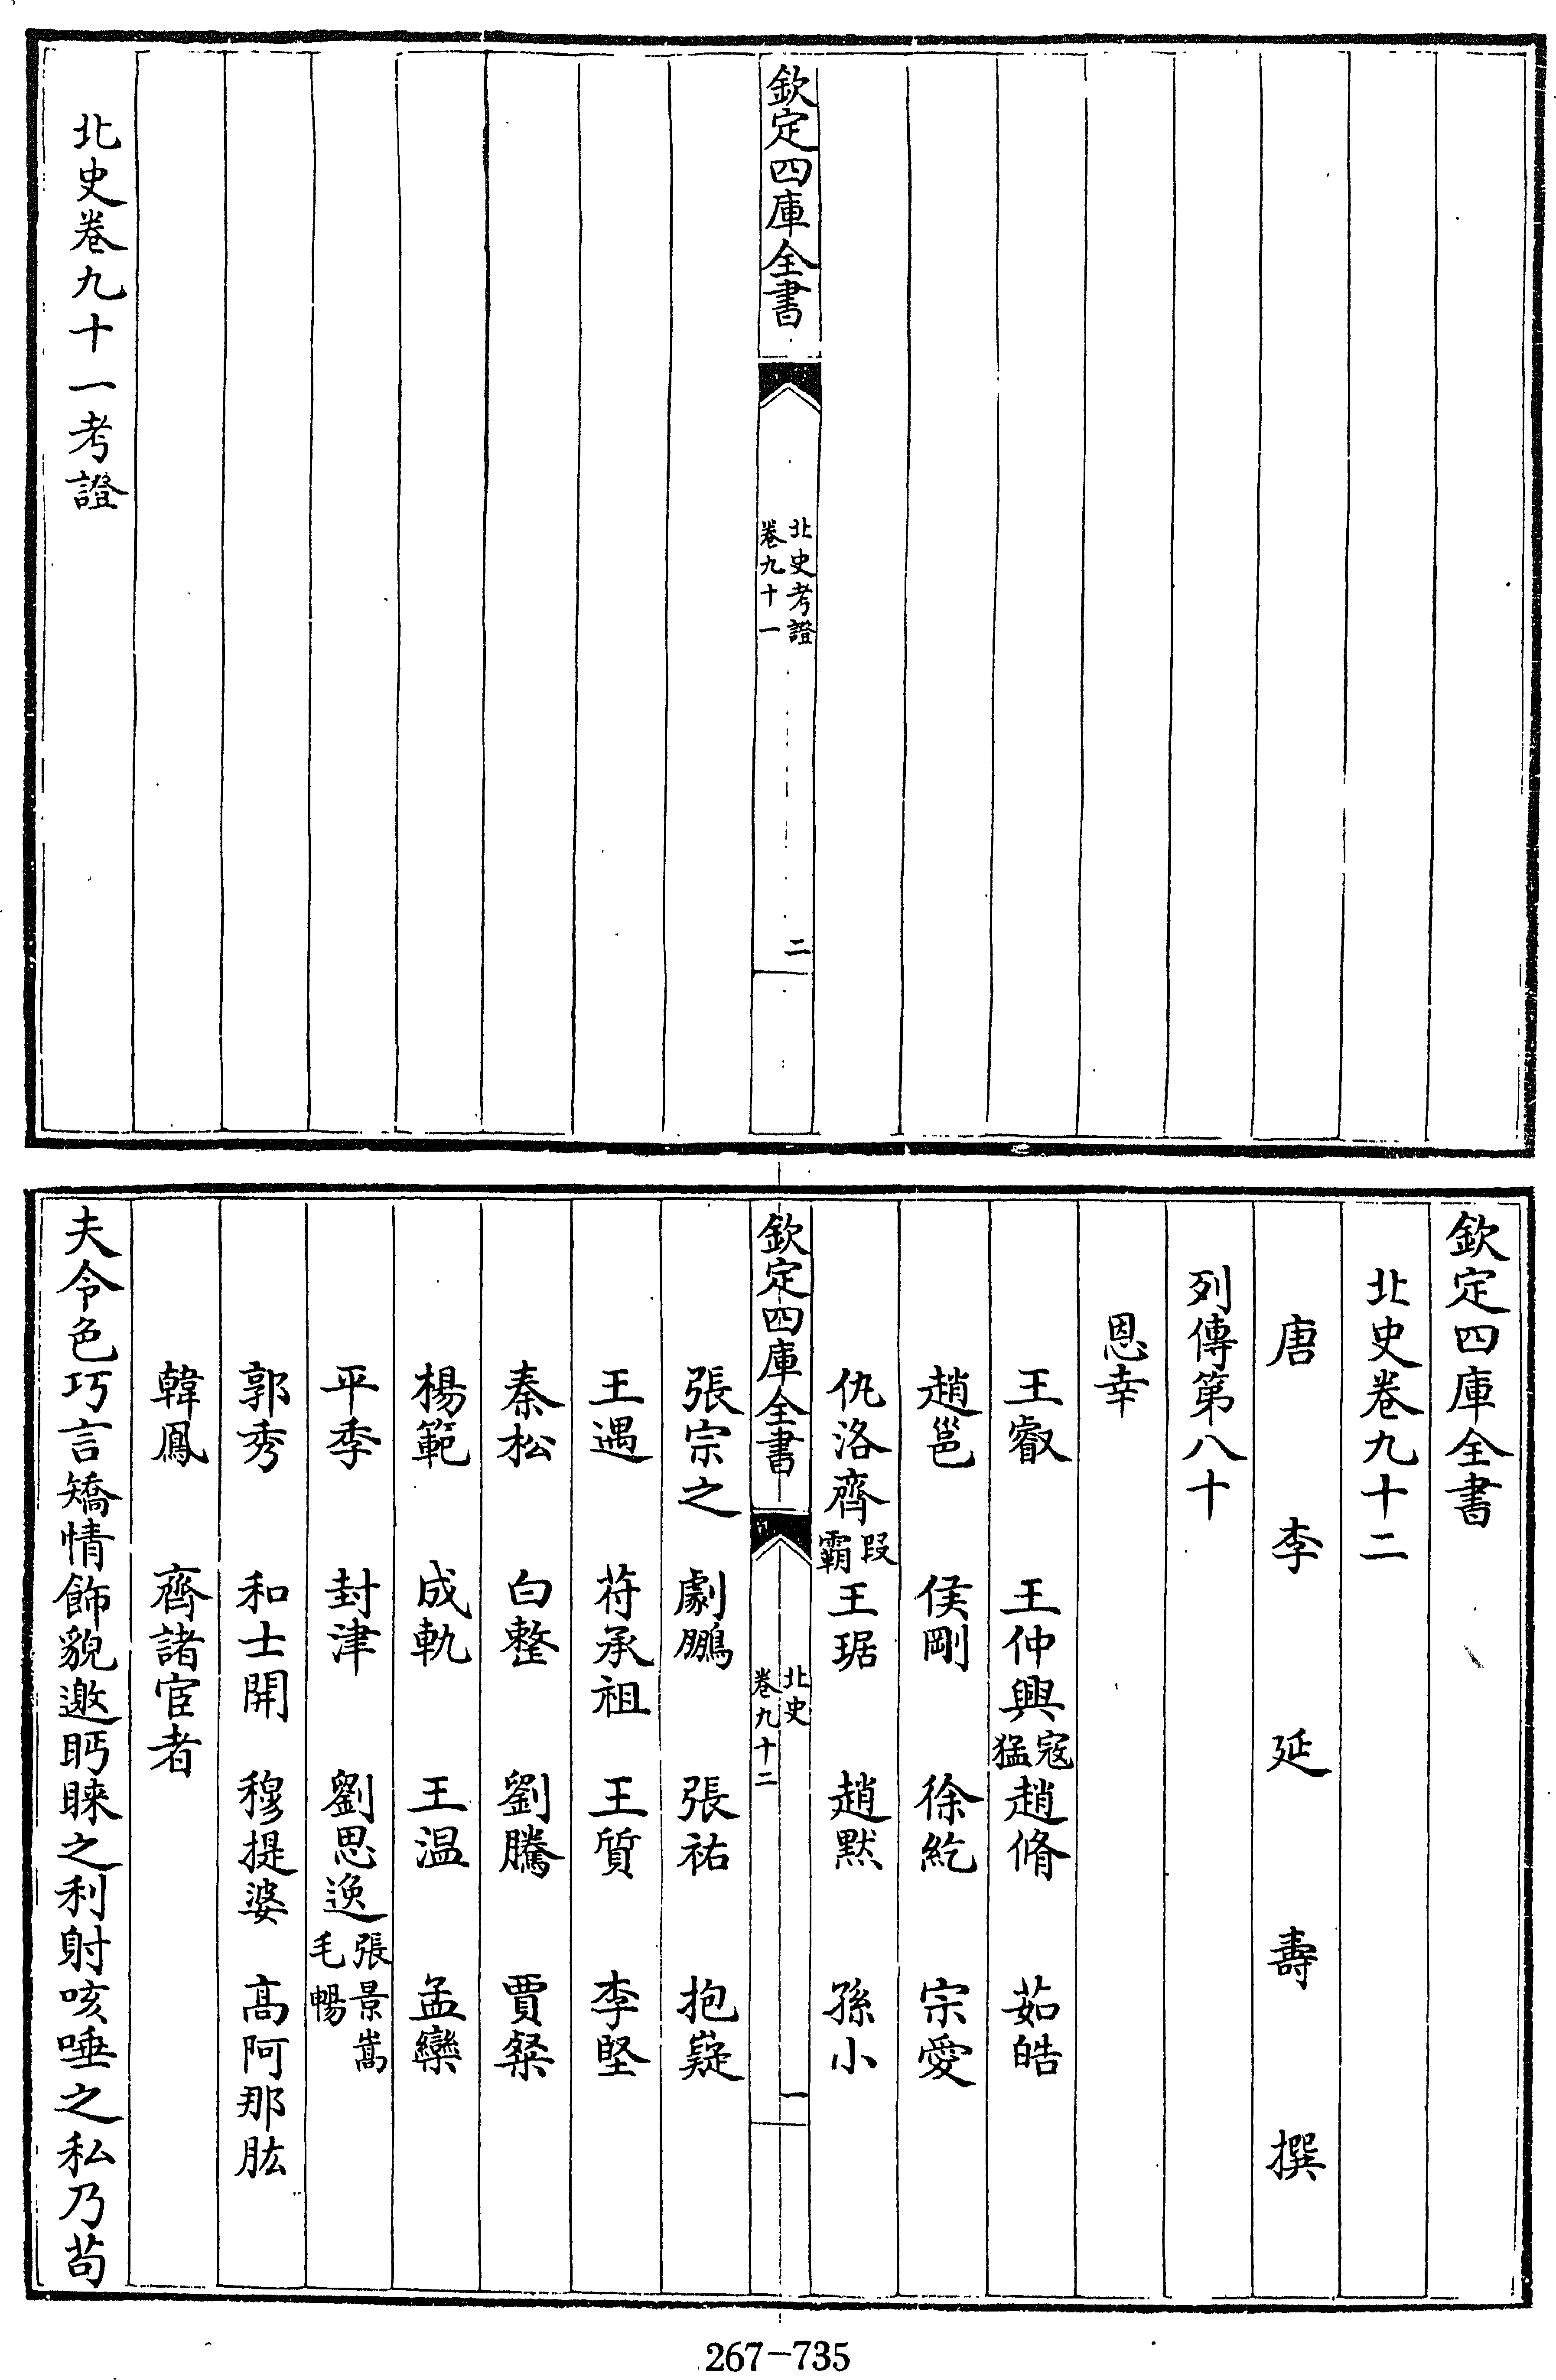 欽定四庫全書
北史考證
卷九十一
二
北史卷九十一考證
欽定四庫全書
北史卷九十二
唐 李 延 壽 撰
列傳第八十
恩幸
王叡 王仲興 寇猛 趙脩 茹皓
趙邕 侯剛 徐紇 宗愛
仇洛齊 段霸 王琚 趙黙 孫小
欽定四庫全書
北史
卷九十二
一
張宗之 劇鵬 張祐 抱嶷
王遇 苻承祖 王質 李堅
秦松 白整 劉騰 賈粲
楊範 成軌 王温 孟欒
平季 封津 劉思逸 張景嵩 毛暢
郭秀 和士開 穆提婆 高阿那肱
韓鳳 齊諸宦者
夫令色巧言矯情飾貌邀眄睞之利射咳唾之私乃苟
267-735